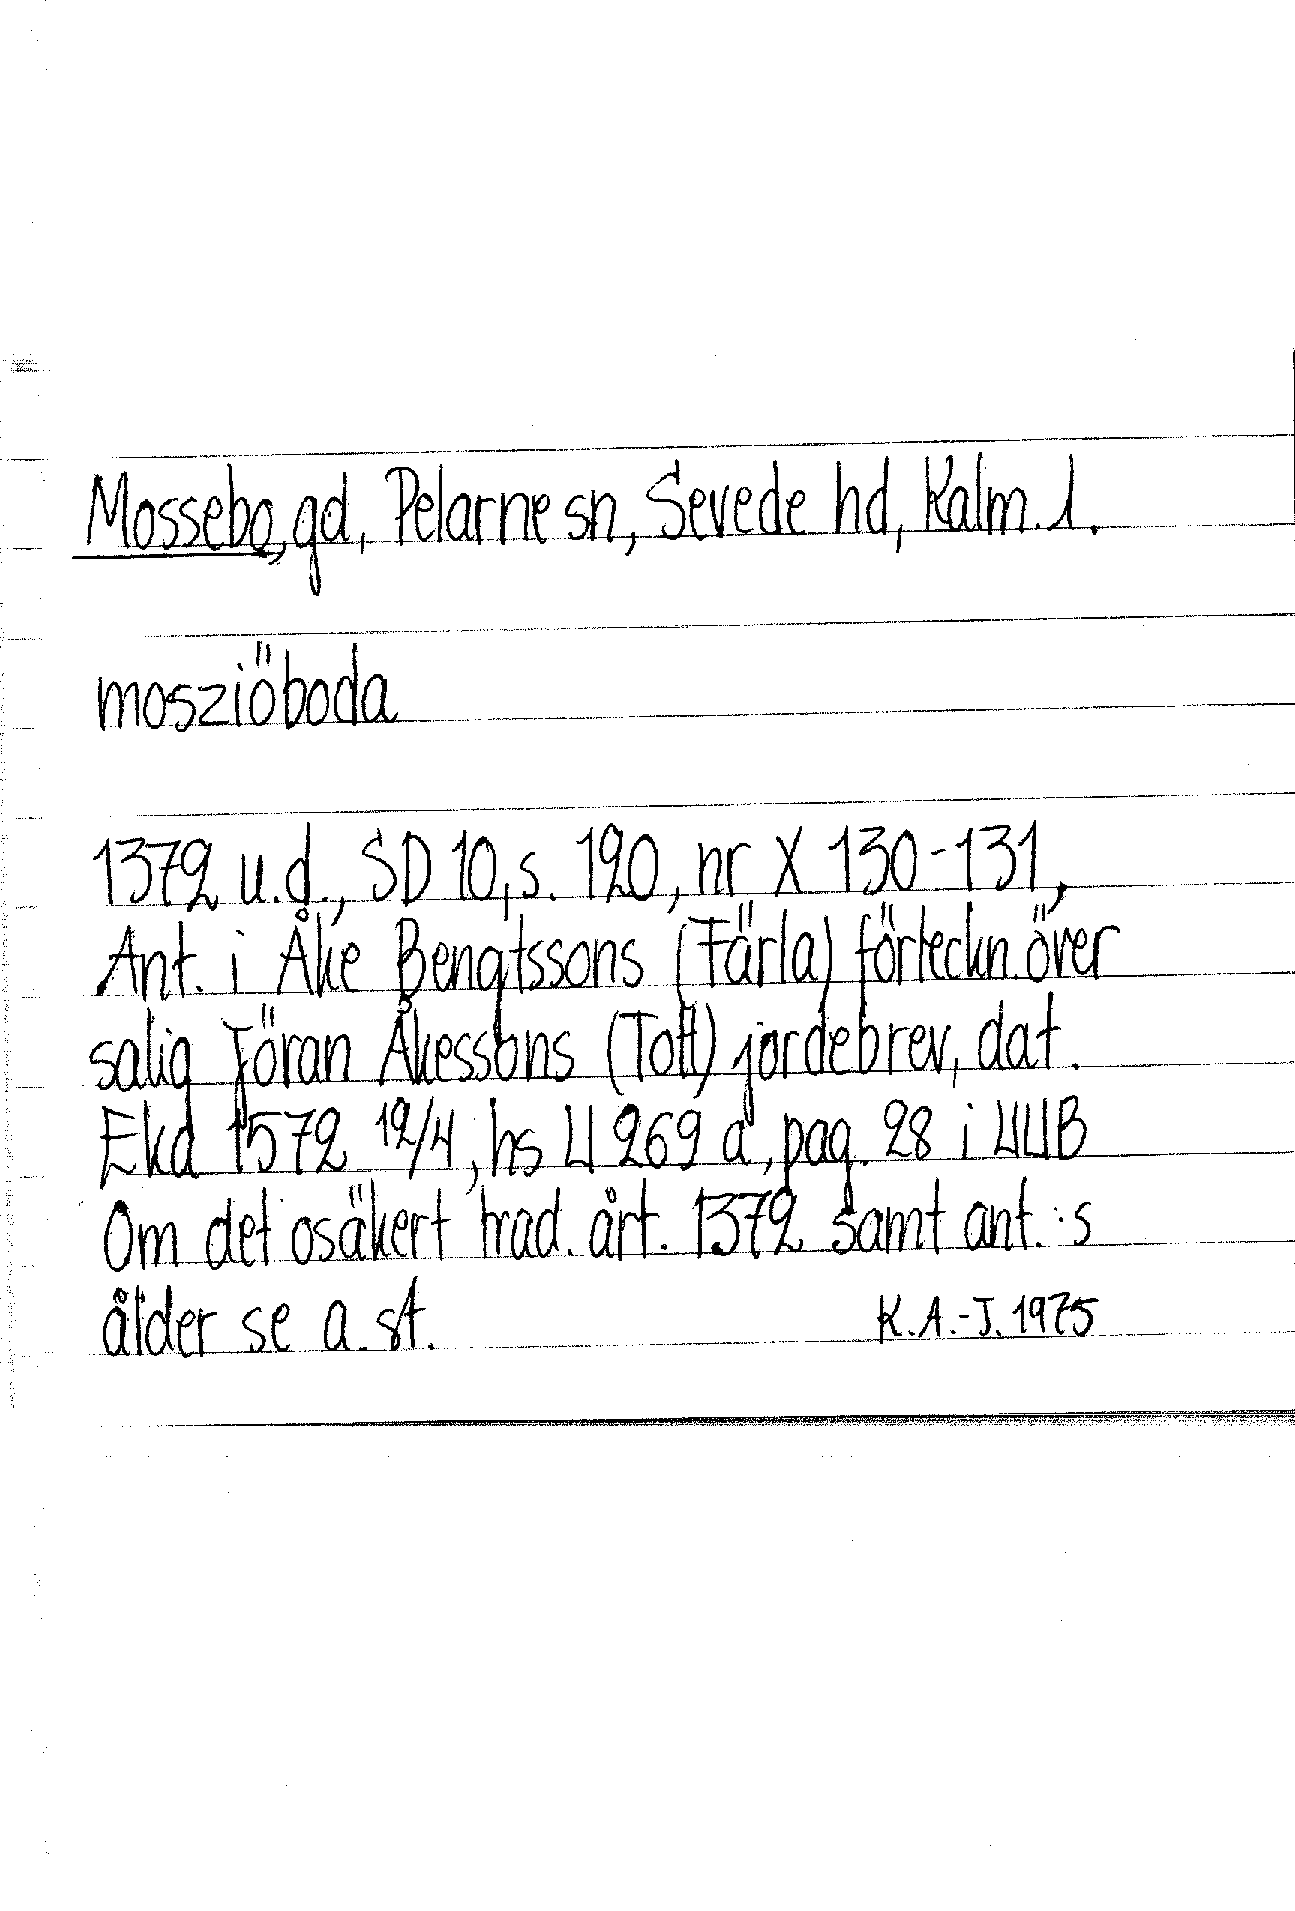 Mossebo, gd, Pelarne sn, Sevede hd, Kalm. l.
mosziöboda
1372 u.d., SD 10, s. 120, nr X 130-131,
Ant. i Åke Bengtssons (Färla) förteckn. över
salig Jöran Åkessons (Tott) jordebrev, dat.
Ekd 1572 12/4, hs U 269 a, pag. 28 i UUB
Om det osäkert trad. årt. 1372 samt ant.:s
ålder se a. st.
K.A.-J. 1975